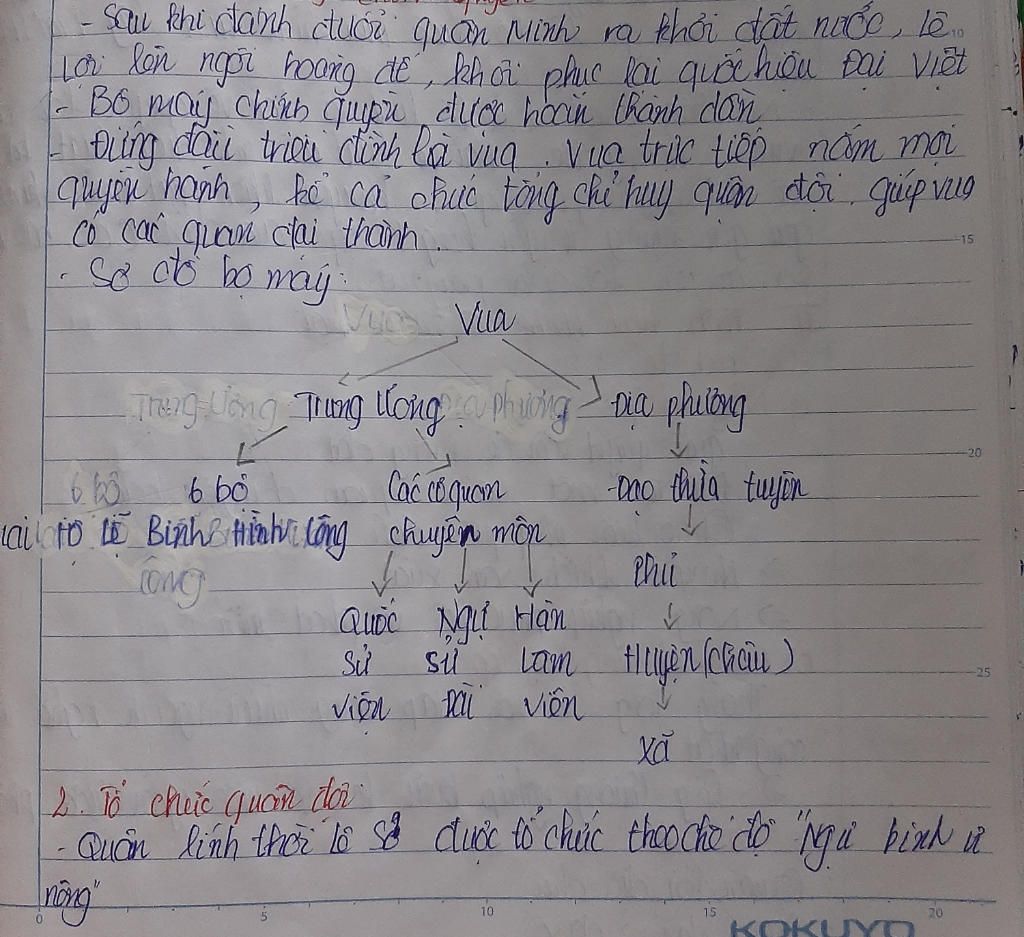 - Sau khi đánh đuổi quân Minh ra khỏi đất nước, Lê
Lợi lên ngôi hoàng đế, khôi phục lại quốc hiệu Đại Việt
- Bộ máy chính quyền được hoàn thành dần
- Đứng đầu triều đình là vua. Vua trực tiếp nắm mọi
quyền hành, kể cả chức tổng chỉ huy quân đội. giúp vua
có các quan đại thành.
15
- Sơ đồ bộ máy:
Vua
Trung Ương Địa phương
20
6 bộ Các cơ quan Đạo thừa tuyên
Lại Hộ Lễ Binh Hình Công chuyên môn
công Phủ
Quốc Ngự Hàn
sử sử Lâm Huyện (Châu)
25
viện Đài viện
Xã
2. Tổ chức quân đội
- Quân lính thời Lê Sơ được tổ chức theo chế độ "Ngụ binh ư
nông"
0 5 10 15 20
KOKUYO